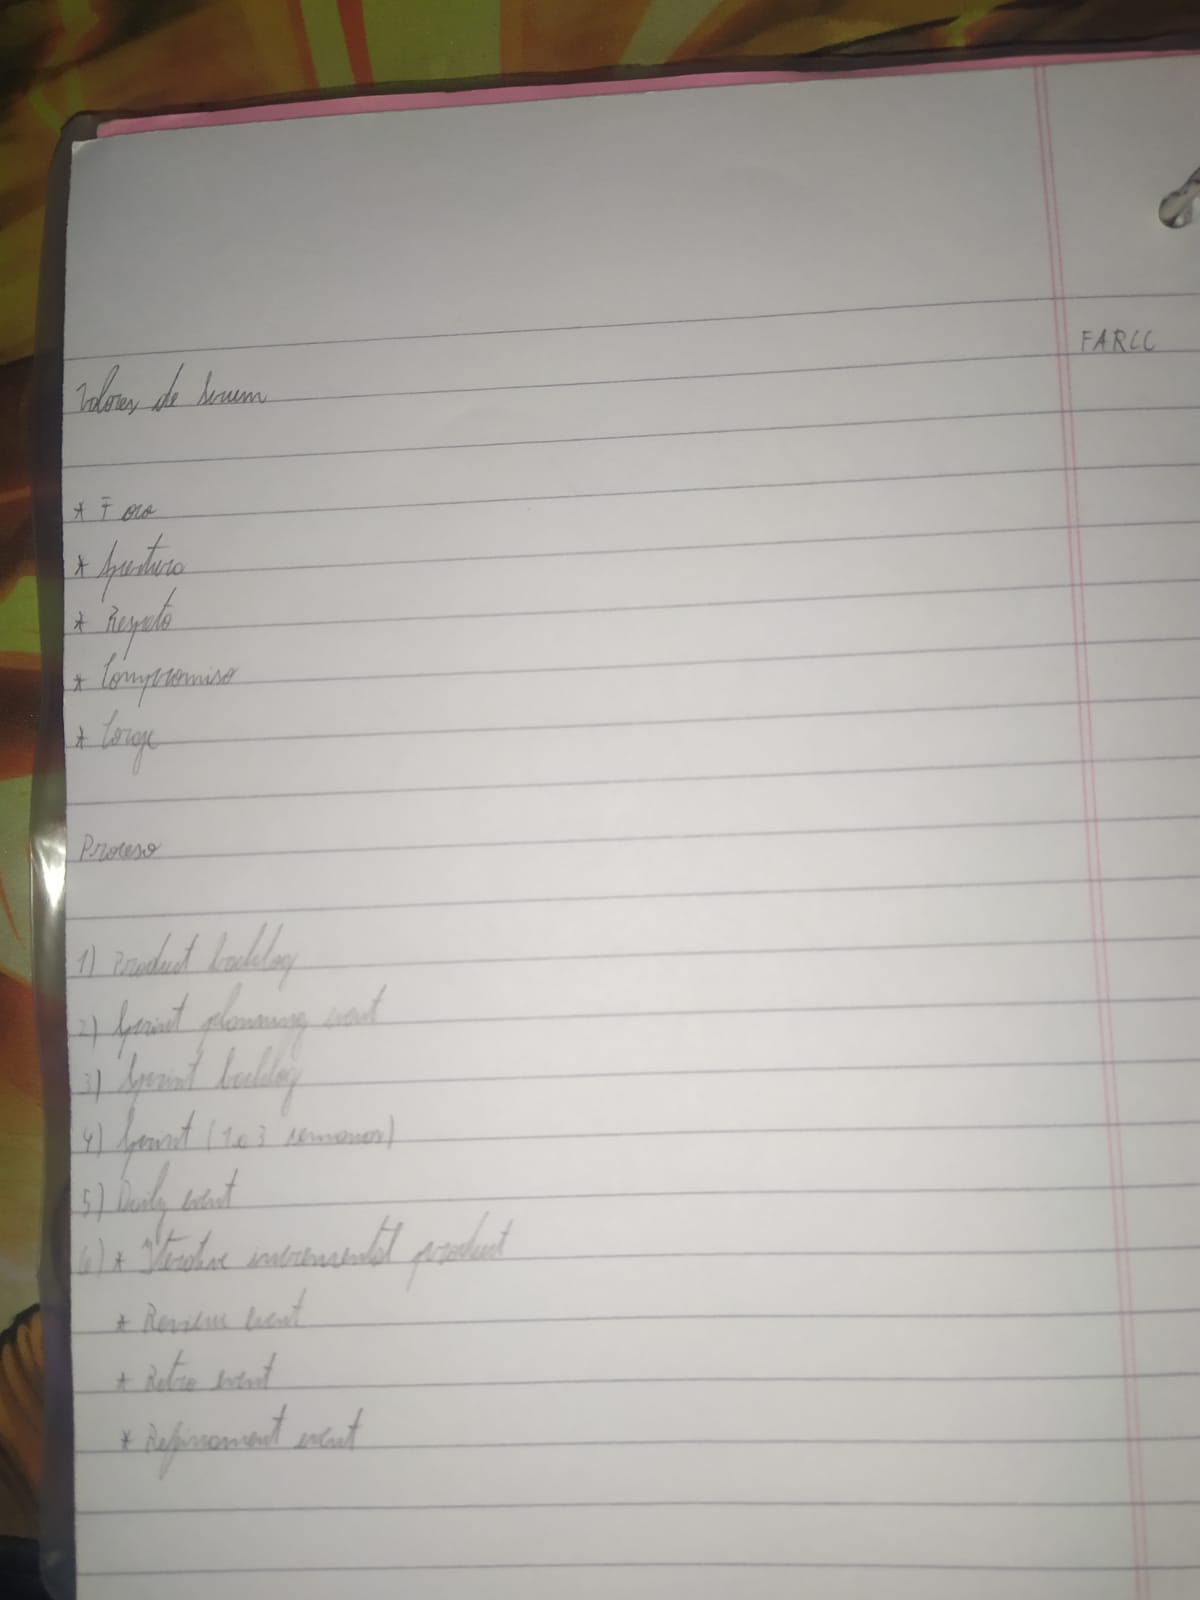 FARCC
Valores de Scrum
* Foco
* Apertura
* Respeto
* Compromiso
* Coraje
Proceso
1) Product backlog
2) Sprint planning event
3) Sprint backlog
4) Sprint (1 a 3 semanas)
5) Daily event
6) * Iterative incremental product
* Review event
* Retro event
* Refinament event